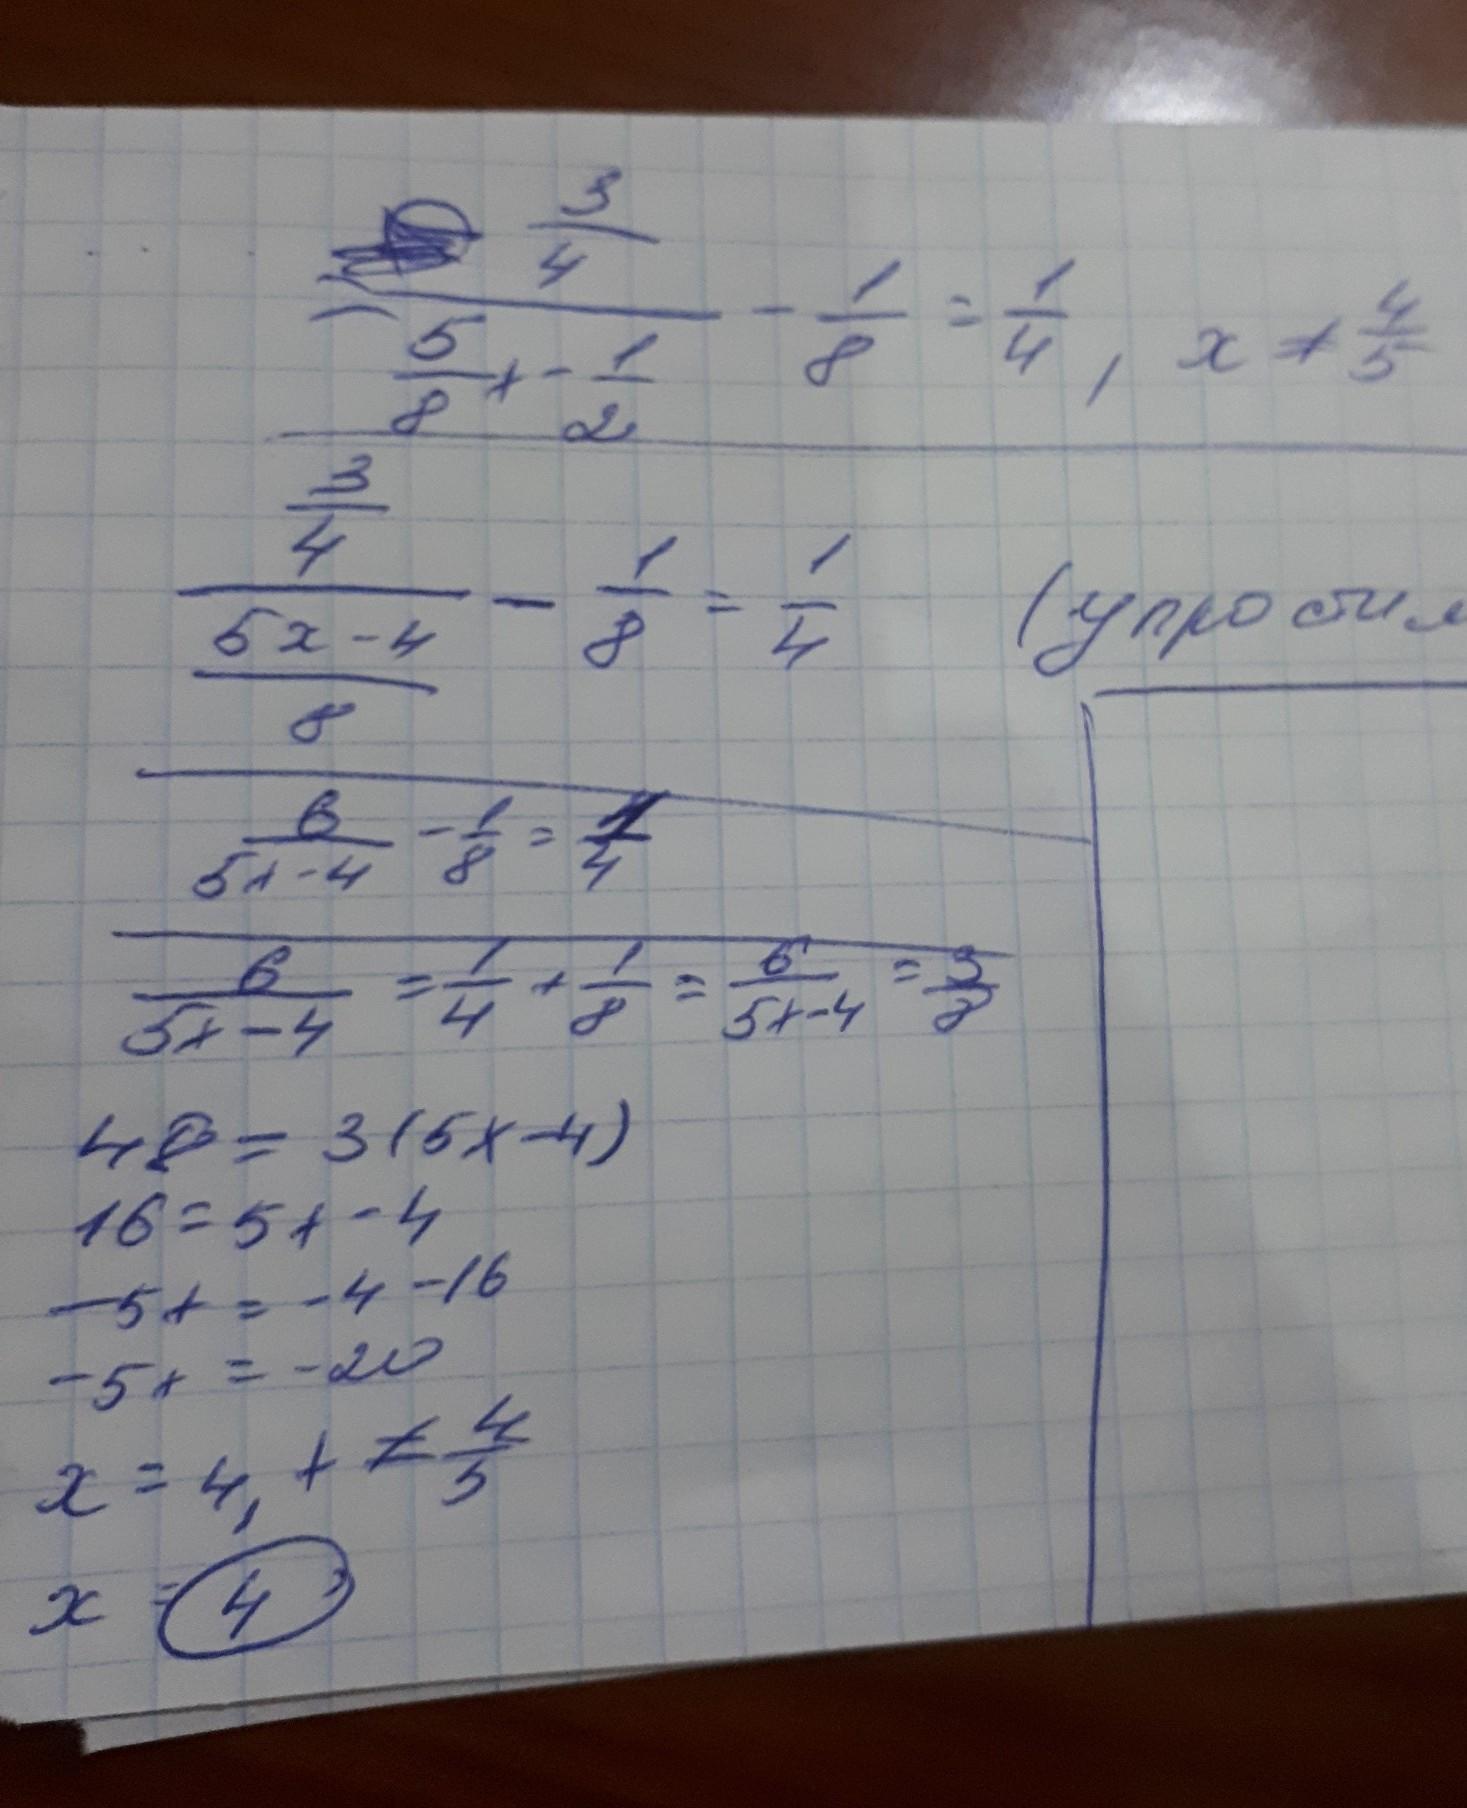 3/4 / (5/8 x - 1/2) - 1/8 = 1/4, x ≠ 4/5
3/4 / ((5x - 4)/8) - 1/8 = 1/4 (упростим
6/(5x-4) - 1/8 = 1/4
6/(5x-4) = 1/4 + 1/8 = 6/(5x-4) = 3/8
48 = 3(5x-4)
16 = 5x - 4
-5x = -4 - 16
-5x = -20
x = 4, x ≠ 4/5
x = 4